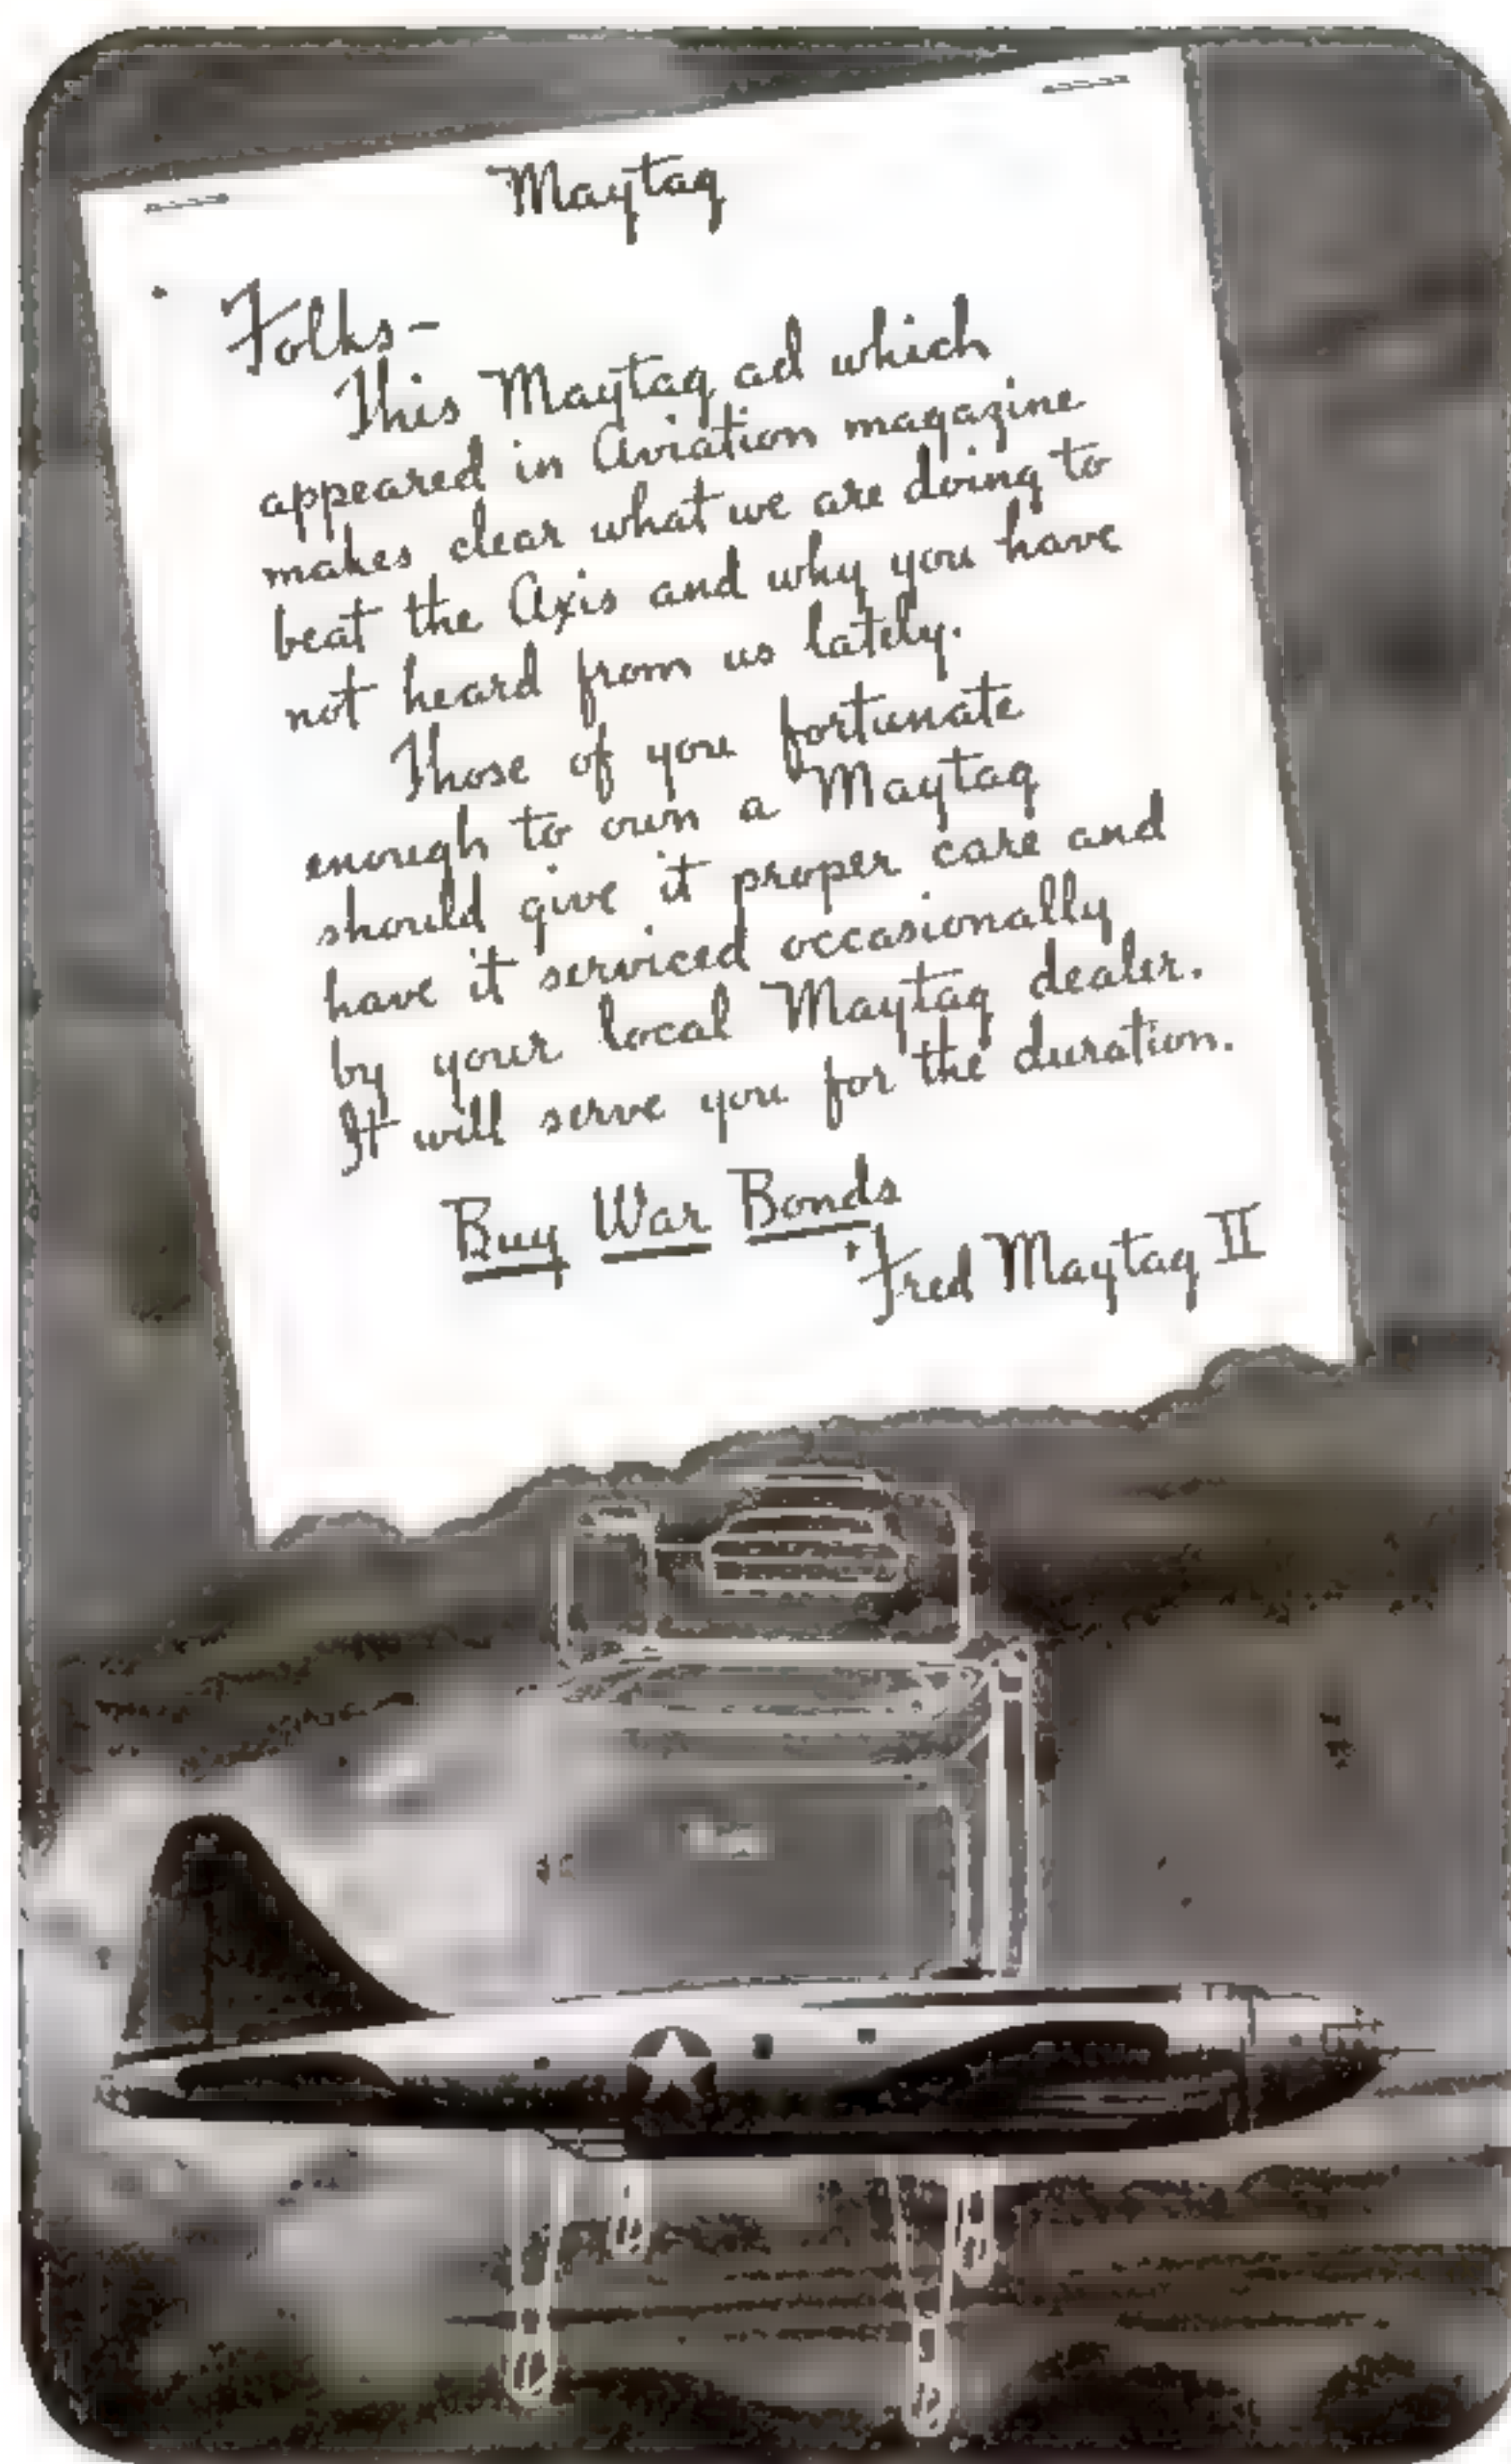 Maytag
Folks-
This Maytag ad which
appeared in Aviation magazine
makes clear what we are doing to
beat the Axis and why you have
not heard from us lately.
Those of you fortunate
enough to own a Maytag
should give it proper care and
have it serviced occasionally
by your local Maytag dealer.
It will serve you for the duration.
Buy War Bonds
Fred Maytag II